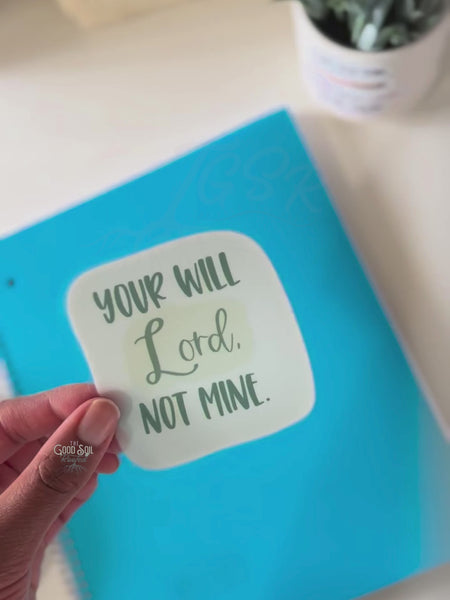 GSR
YOUR WILL
Lord,
NOT MINE.
THE
GOOD SOIL